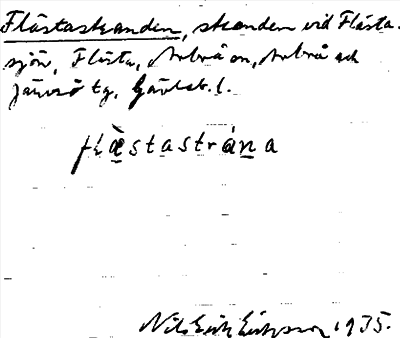 Flästastranden, stranden vid Flästa-
sjön, Flästa, Arbrå sn, Arbrå och
Järvsö tg, Gävleb. l.
flæ̀stastrána
Nils Erik Eriksson 1935.